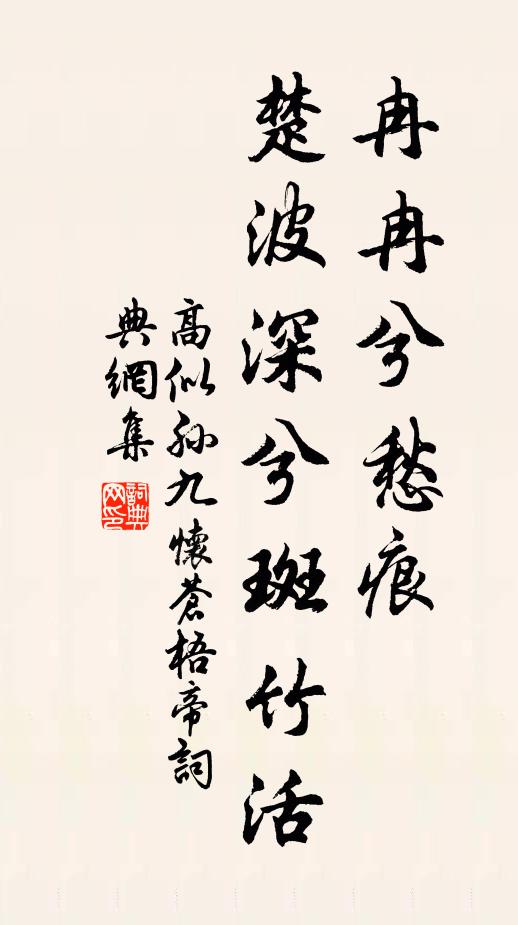 冉冉兮愁痕
楚波深兮斑竹活
高似孙九懷蒼梧帝詞
典網集
詞典網印